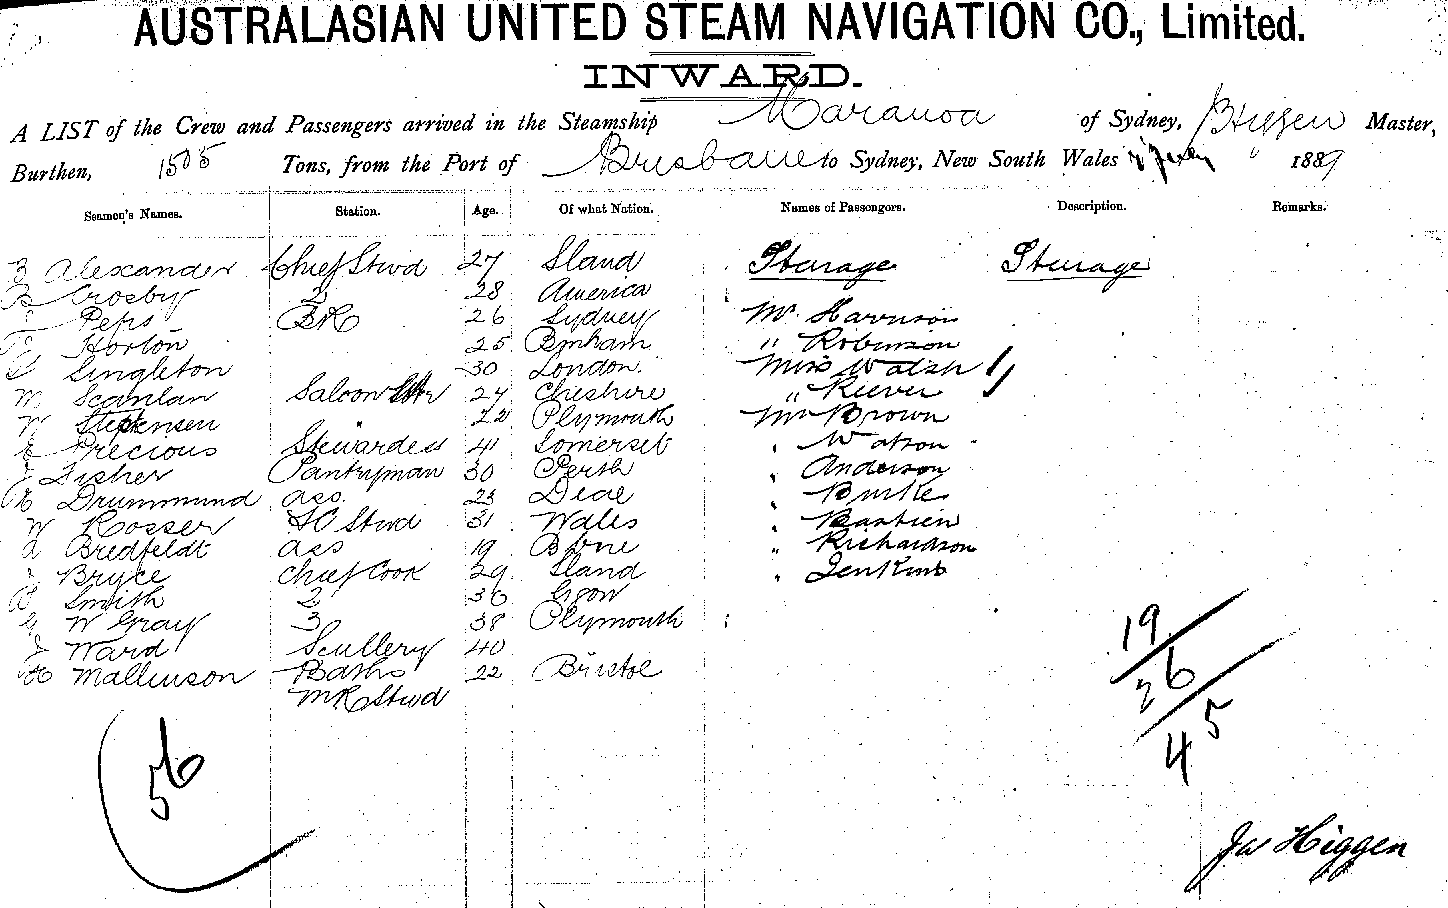 AUSTRALASIAN UNITED STEAM NAVIGATION CO., Limited.
INWARD.
A LIST of the Crew and Passengers arrived in the Steamship Maranoa of Sydney, Higgen Master,
Burthen, 1505 Tons, from the Port of Brisbane to Sydney, New South Wales 1889
Seamen's Names. Station. Age. Of what Nation. Names of Passengers. Description. Remarks.
Alexander Chief Stwd 27 Sland Sturage Sturage
Crosby 2 28 America
Peps BK 26 Sydney Mr Harrison
Horton 25 Bmham " Robinson
Singleton 30 London. Miss Walsh
M Scanlan Saloon 27 Cheshire " Reever
W 22 Plymouth Mr Brown
Precious Stewardess 41 Somerset Watson
Fisher Pantryman 30 Perth Anderson
Drummund ass. 23 Deal Burke
W Rosser FC Stwd 31 Wales Bastien
A Bredfeldt ass 19 Bbne Richardson
Bryce Chief Cook 29 Sland Jenkins
Smith 2 36 Ggow
W Gray 3 38 Plymouth
Ward Scullery 40
Mallinson Baths 22 Bristol
MR Stwd
19
26
45
56
Jas Higgen